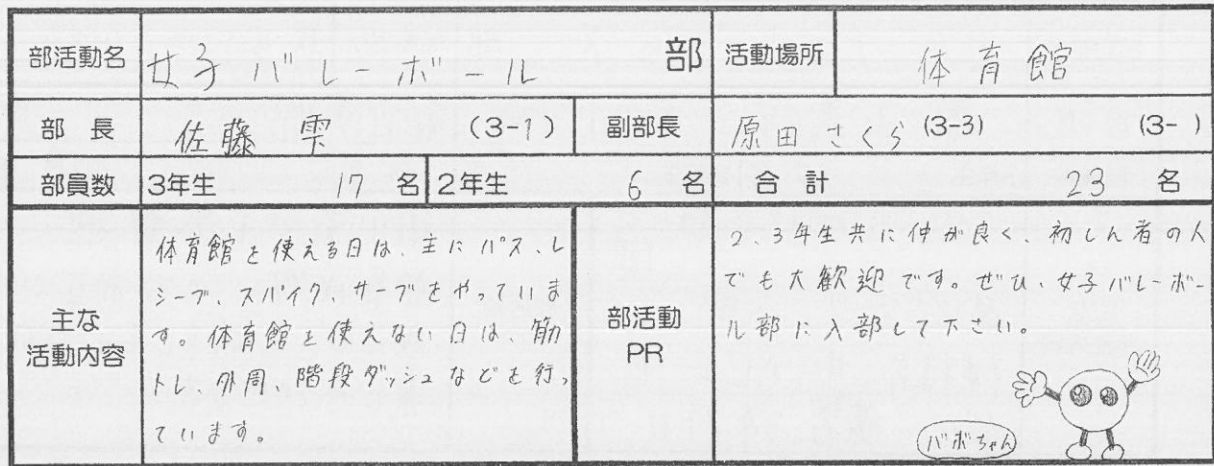 部活動名 女子バレーボール 部 活動場所 体育館
部長 佐藤 雫 (3-1) 副部長 原田さくら (3-3) (3- )
部員数 3年生 17名 2年生 6名 合計 23名
主な
活動内容
体育館を使える日は、主にパス、レ
シーブ、スパイク、サーブをやっていま
す。体育館を使えない日は、筋
トレ、外周、階段ダッシュなどを行っ
ています。
部活動
PR
2、3年生共に仲が良く、初しん者の人
でも大歓迎です。ぜひ、女子バレーボー
ル部に入部して下さい。
バボちゃん